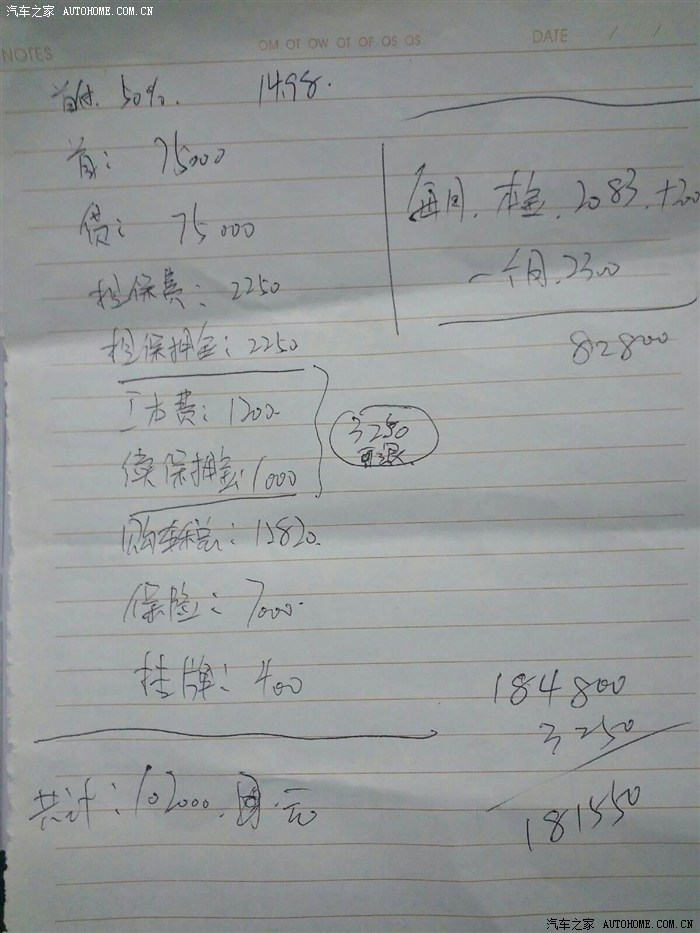 汽车之家 AUTOHOME.COM.CN
NOTES
OM OT OW OT OF OS OS
DATE / /
首付. 50%. 14.98.
首: 75000
贷: 75000
担保费: 2250
担保押金: 2250
工本费: 1200
续保押金: 1000
3250
可退
购车税: 12820
保险: 7000
挂牌: 400
共计: 102000. 元
每月. 本金. 2083. +200
一个月. 2300
82800
184800
3250
181550
汽车之家 AUTOHOME.COM.CN